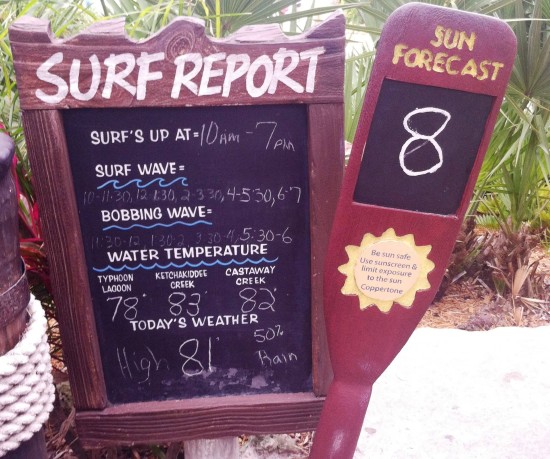 SURF REPORT
SURF'S UP AT= 10AM-7PM
SURF WAVE=
10-11:30, 12-1:30, 2-3:30, 4-5:30, 6-7
BOBBING WAVE=
11:30-12, 1:30-2, 3:30-4, 5:30-6
WATER TEMPERATURE
TYPHOON LAGOON
78°
KETCHAKIDDEE CREEK
83°
CASTAWAY CREEK
82°
TODAY'S WEATHER
High 81°
50%
Rain
SUN
FORECAST
8
Be sun safe
Use sunscreen &
limit exposure
to the sun
Coppertone